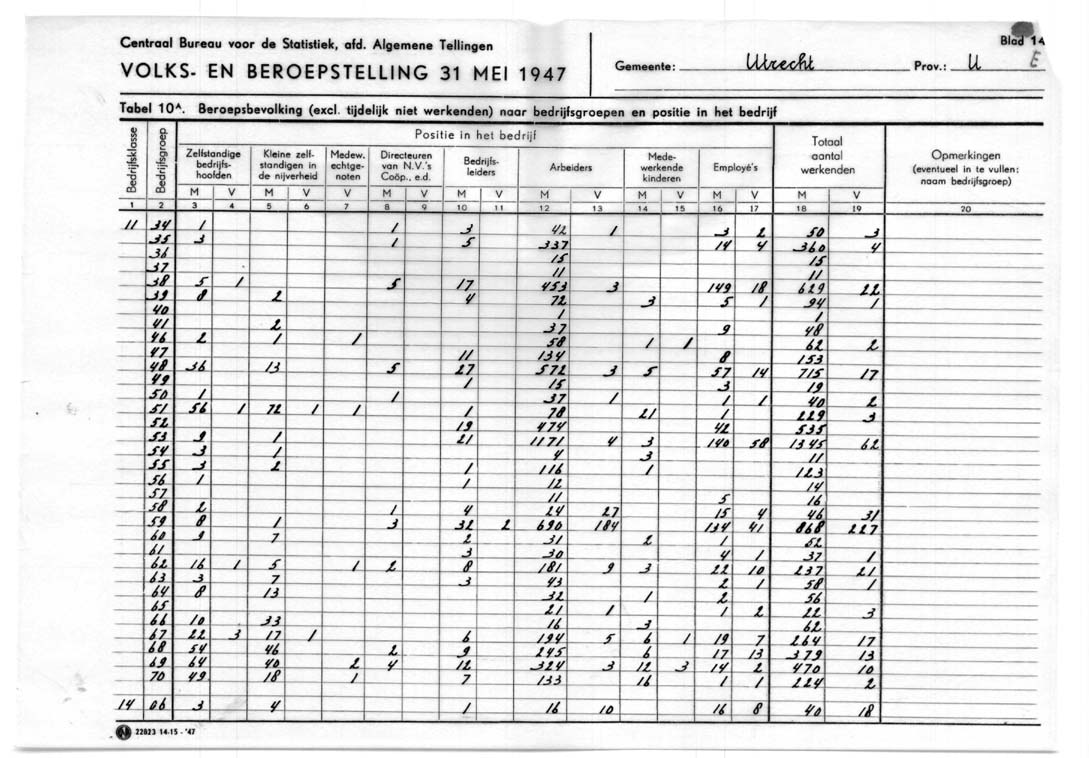 Centraal Bureau voor de Statistiek, afd. Algemene Tellingen
Blad 14
E
VOLKS- EN BEROEPSTELLING 31 MEI 1947
Gemeente: Utrecht Prov.: U
Tabel 10A. Beroepsbevolking (excl. tijdelijk niet werkenden) naar bedrijfsgroepen en positie in het bedrijf
Bedrijfsklasse Bedrijfsgroep Positie in het bedrijf Totaal aantal werkenden Opmerkingen (eventueel in te vullen: naam bedrijfsgroep)
Zelfstandige bedrijfs-hoofden Kleine zelf-standigen in de nijverheid Medew. echtge-noten Directeuren van N.V.'s Coöp., e.d. Bedrijfs-leiders Arbeiders Mede-werkende kinderen Employé's
M V M V V M V M V M V M V M V M V
1 2 3 4 5 6 7 8 9 10 11 12 13 14 15 16 17 18 19 20
11 34 1 1 3 42 1 3 2 50 3
35 3 1 5 337 14 4 360 4
36 15 15
37 11 11
38 5 1 5 17 453 3 149 18 629 22
39 8 2 4 72 3 5 1 94 1
40 1 1
41 2 37 9 48
46 2 1 1 58 1 1 62 2
47 11 134 8 153
48 36 13 5 27 572 3 5 57 14 715 17
49 1 15 3 19
50 1 1 37 1 1 1 40 2
51 56 1 72 1 1 1 78 21 1 229 3
52 19 474 42 535
53 9 1 21 1171 4 3 140 58 1345 62
54 3 1 4 3 11
55 3 2 1 116 1 123
56 1 1 12 14
57 11 5 16
58 2 1 4 24 27 15 4 46 31
59 8 1 3 32 2 690 184 134 41 868 227
60 9 7 2 31 2 1 52
61 3 30 4 1 37 1
62 16 1 5 1 2 8 181 9 3 22 10 237 21
63 3 7 3 43 2 1 58 1
64 8 13 32 1 2 56
65 21 1 1 2 22 3
66 10 33 16 3 62
67 22 3 17 1 6 194 5 6 1 19 7 264 17
68 54 46 2 9 245 6 17 13 379 13
69 64 40 2 4 12 324 3 12 3 14 2 470 10
70 49 18 1 7 133 16 1 1 224 2
14 06 3 4 1 16 10 16 8 40 18
N 22823 14-15 - '47